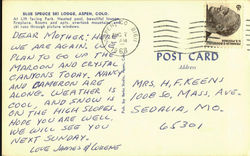 BLUE SPRUCE SKI LODGE, ASPEN, COLO.
At Lift facing Park. Heated pool, beautiful lounge,
fireplace.
all rooms through picture windows.
DEAR MOTHER: HERE
WE ARE AGAIN. WE
PLAN TO GO UP THE
MAROON AND CRYSTAL
CANYONS TODAY. NANCY
AND CAMERON ARE
ALONG. WEATHER IS
COOL, AND SNOW IS
ON THE HIGH SLOPES.
HOPE YOU ARE WELL.
WE WILL SEE YOU
NEXT SUNDAY.
LOVE JAMES &
POST CARD
Address
MRS. H. F. KEENS
1008 SO. MASS. AVE.
SEDALIA, MO.
65301